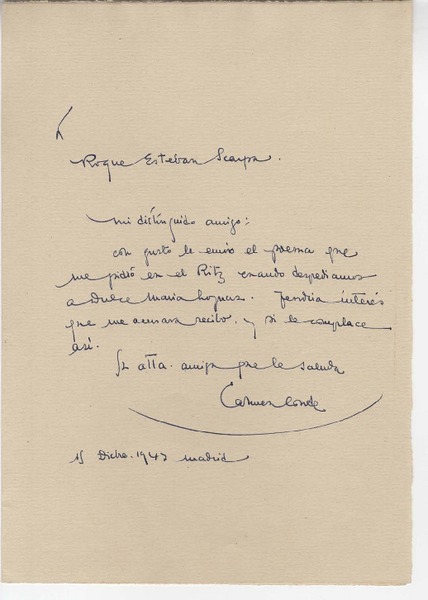 Roque Esteban Scarpa.
Mi distinguido amigo:
con gusto le envío el poema que
me pidió en el Ritz cuando despedíamos
a Dulce María Loynaz. Tendría interés
que me acusara recibo, y si le complace
así.
Su atta. amiga que le saluda
Carmen Conde
15 Dicbre. 1947 Madrid